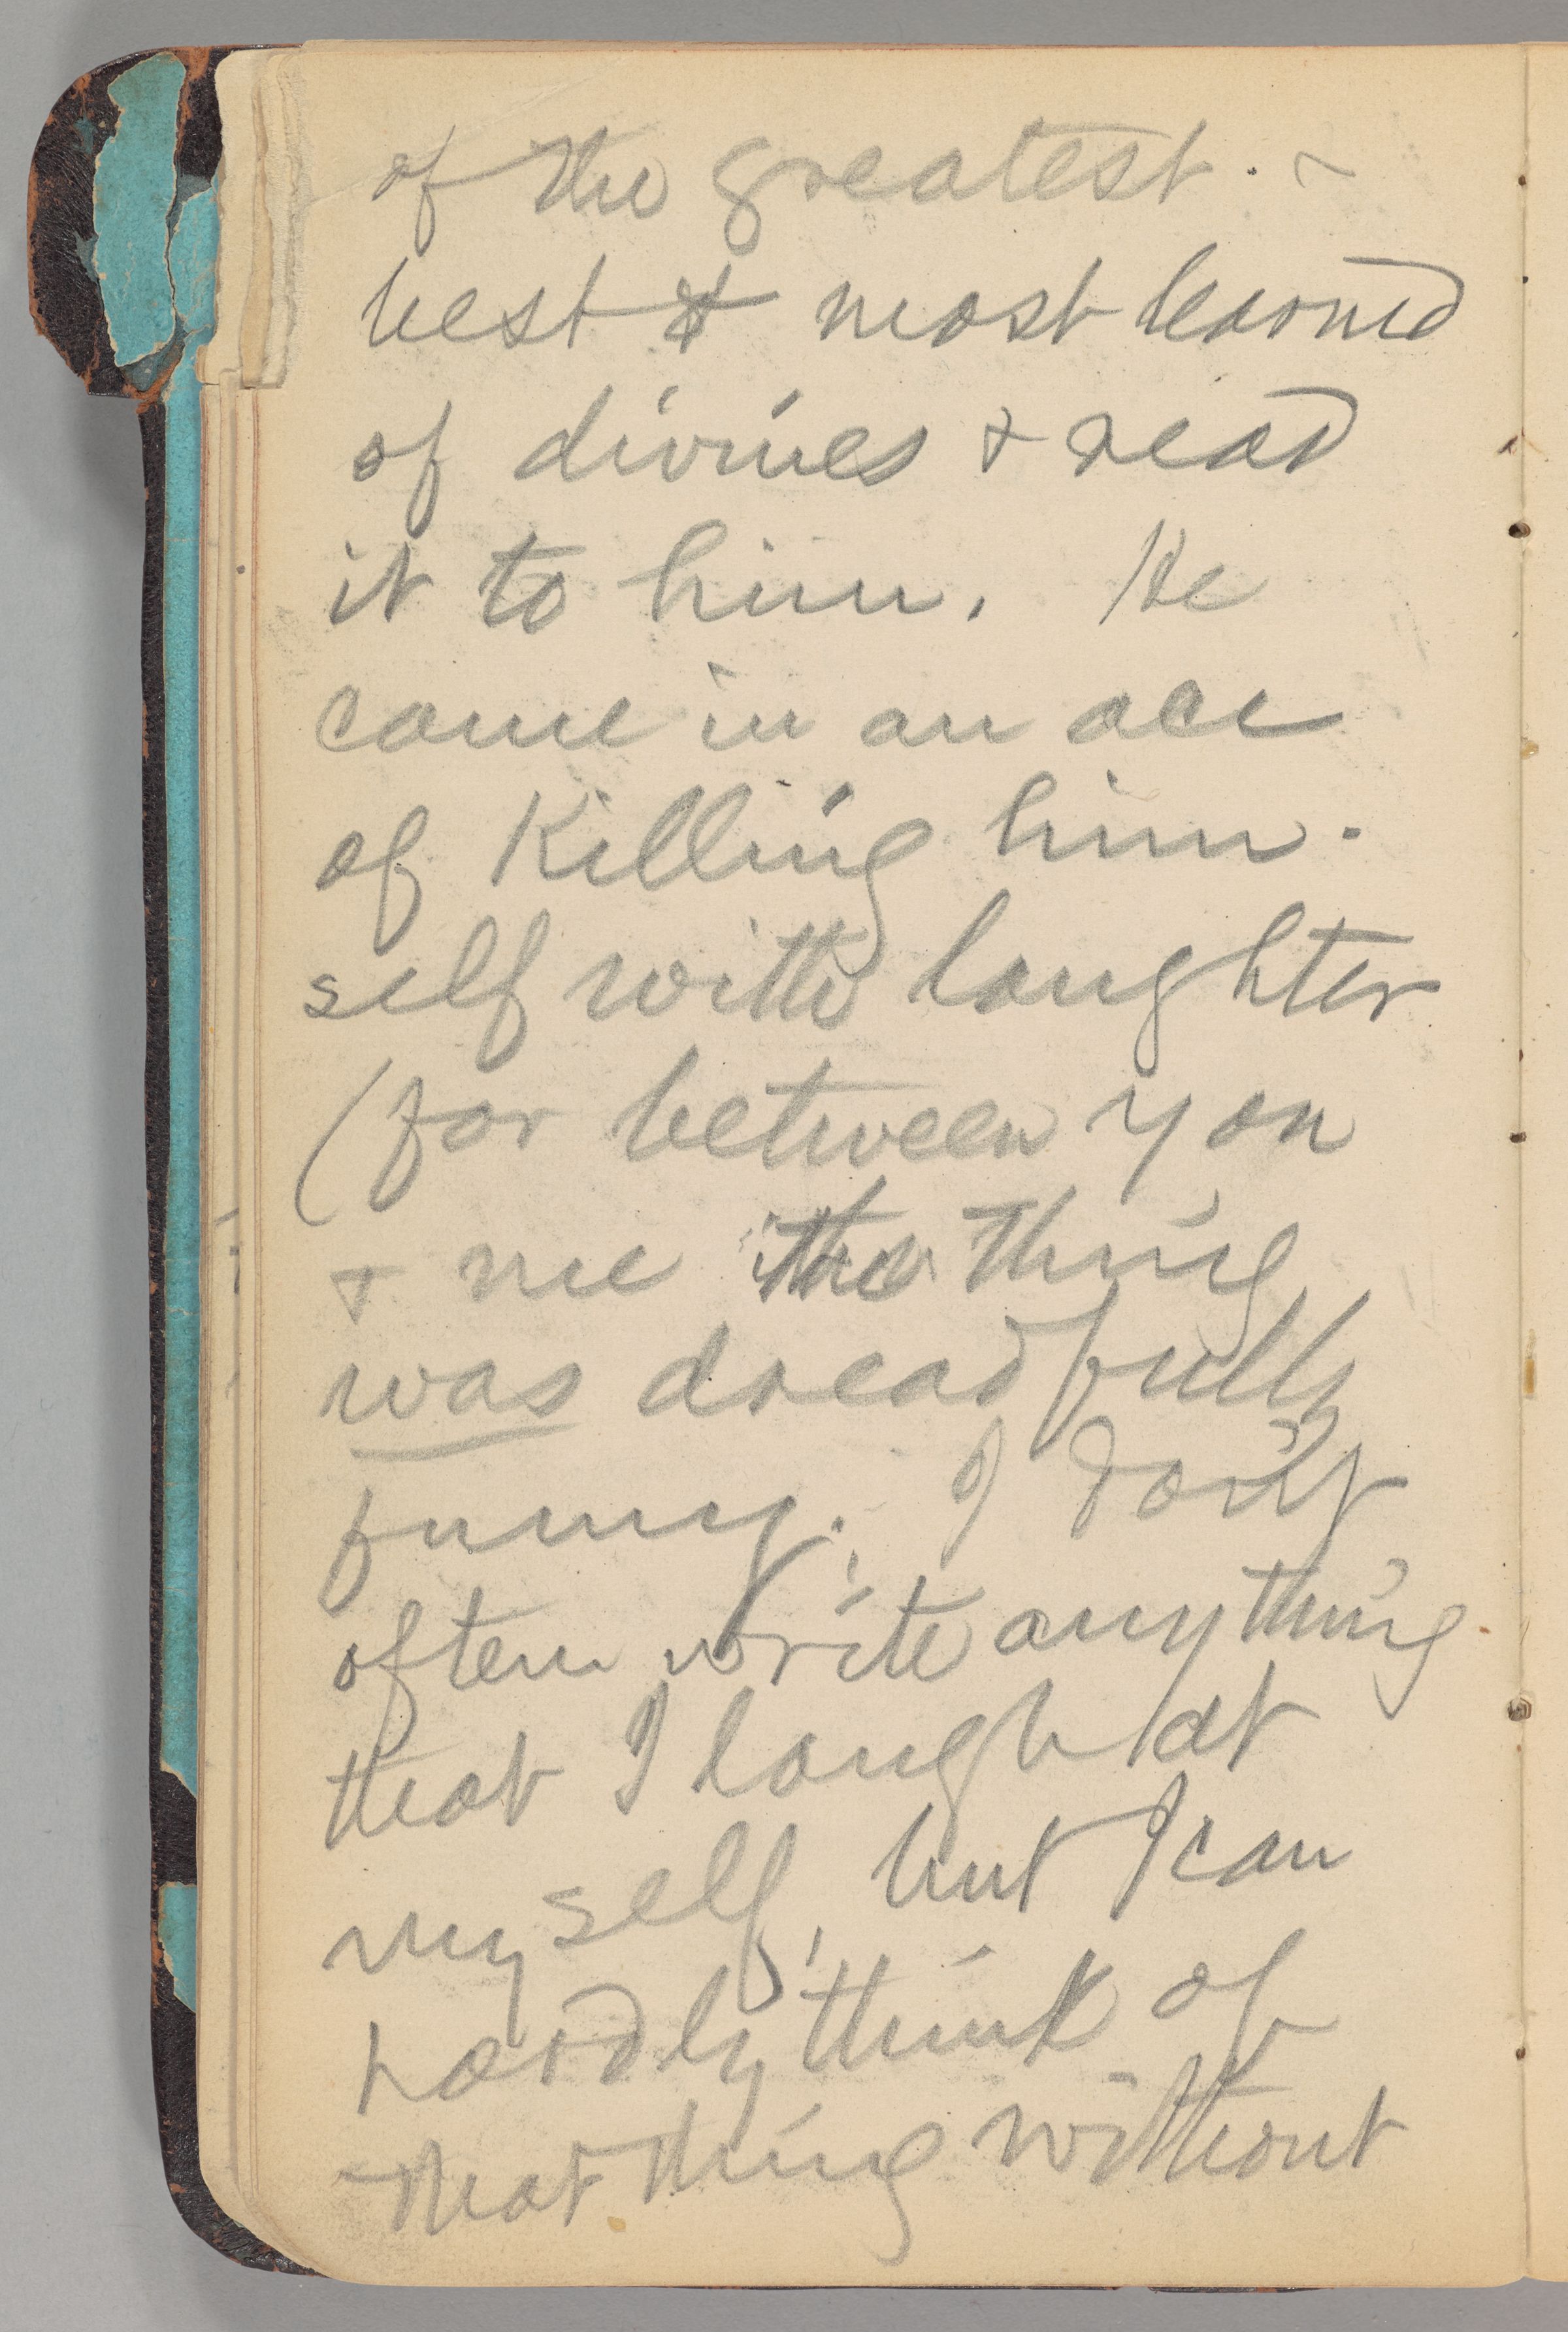 of the greatest. ~
best & most learned
of divines & read
it to him. He
came in an ace
of killing him-
self with laughter
(for between you
& me the thing
was dreadfully
funny. I don't
often write anything
that I laugh at
myself, but I can
hardly think of
that thing without